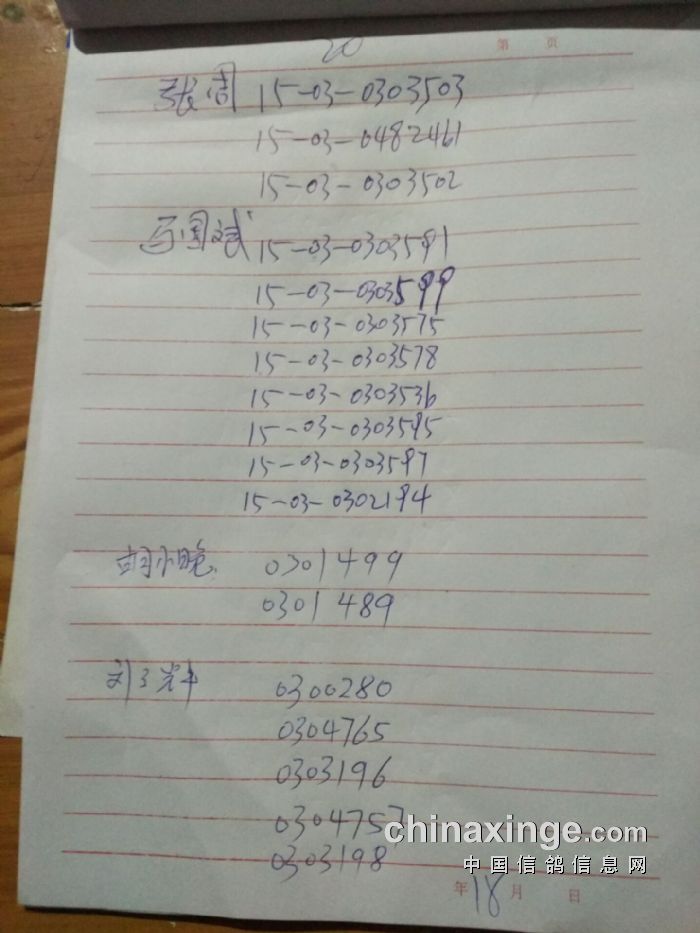 20
第 页
张周 15-03-0303503
15-03-0482461
15-03-0303502
马国斌 15-03-0303591
15-03-0303599
15-03-0303575
15-03-0303578
15-03-0303536
15-03-0303595
15-03-0303597
15-03-0302194
胡小晚 0301499
0301489
刘 0300280
0304765
0303196
0304757
0303198
chinaxinge.com
中国信鸽信息网
年 18 月 日